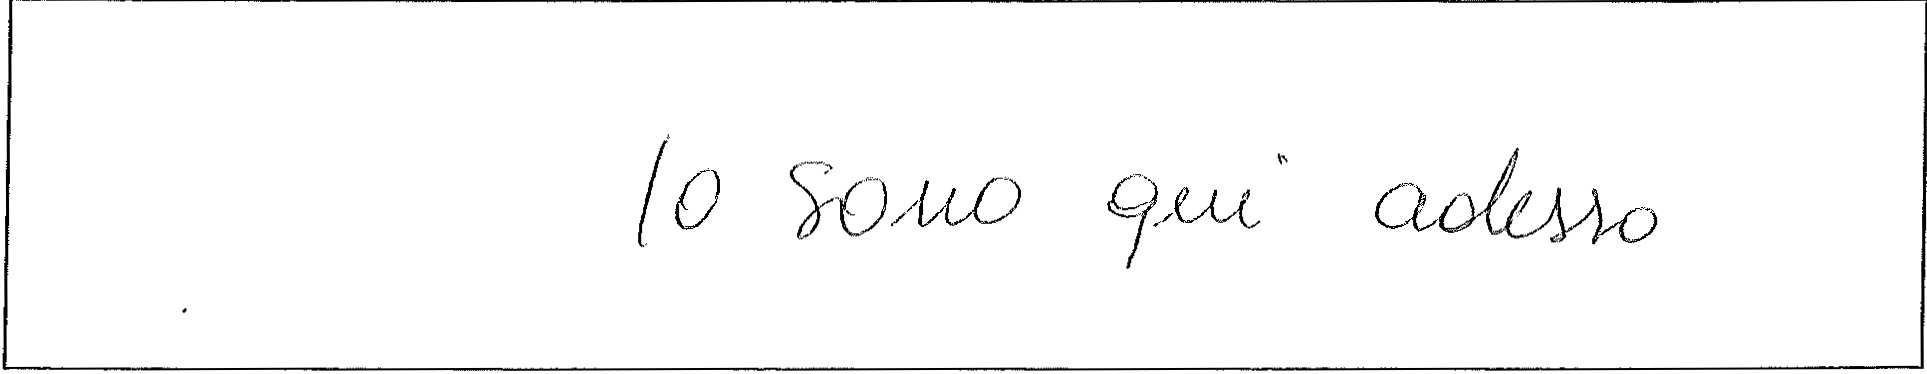 Io sono qui adesso